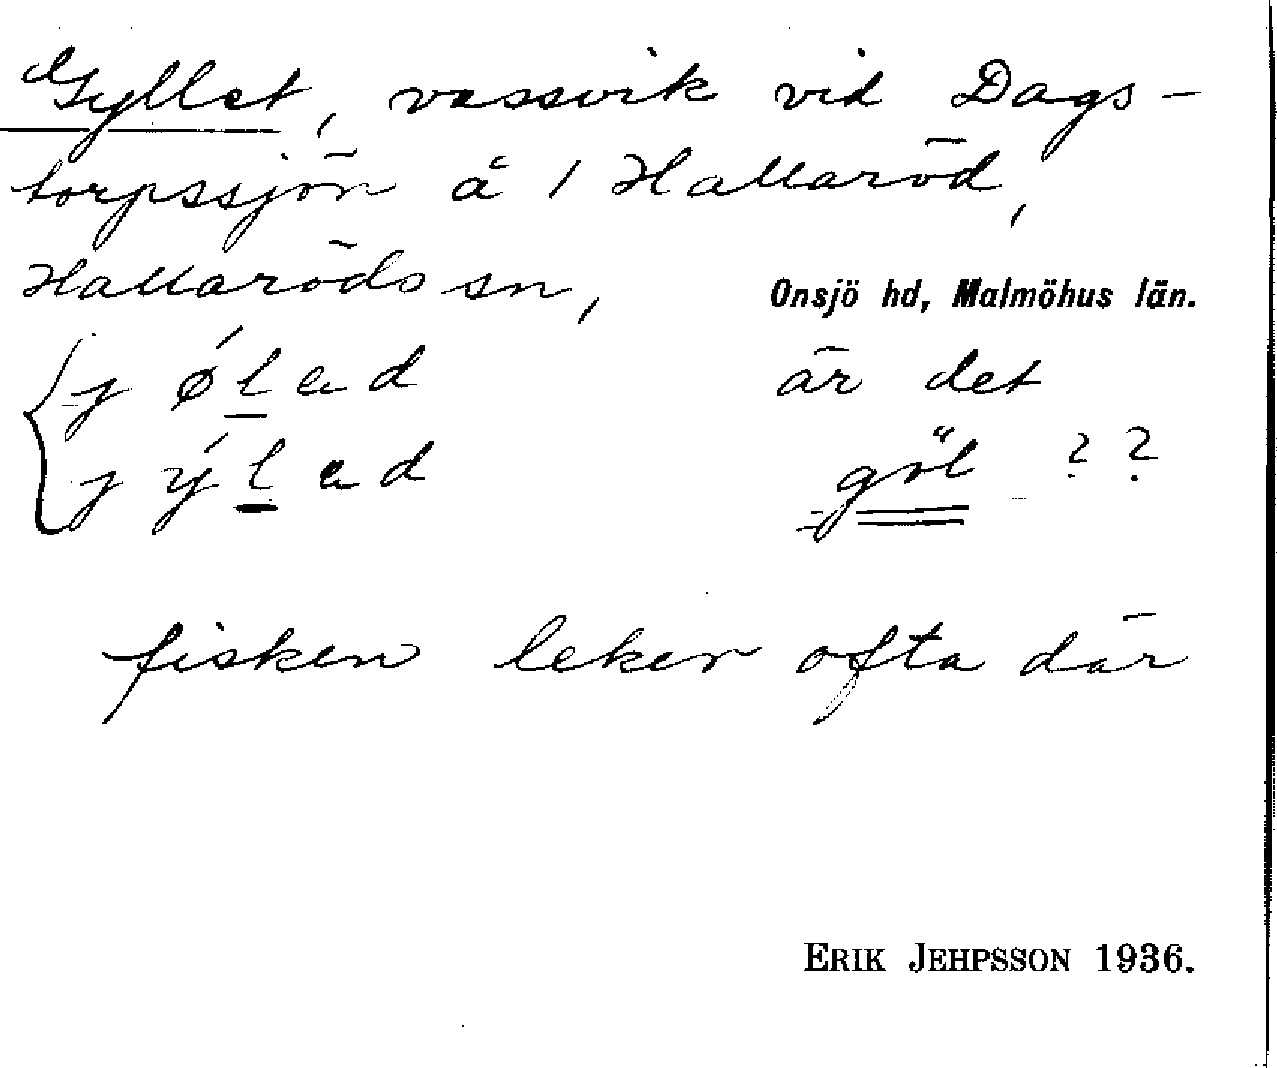 Gyllet, vassvik vid Dags-
torpssjön å 1 Hallaröd,
Hallaröds sn, Onsjö hd, Malmöhus län.
j ǿ l a d är det
j ý l a d göl ??
fisken leker ofta där
ERIK JEHPSSON 1936.